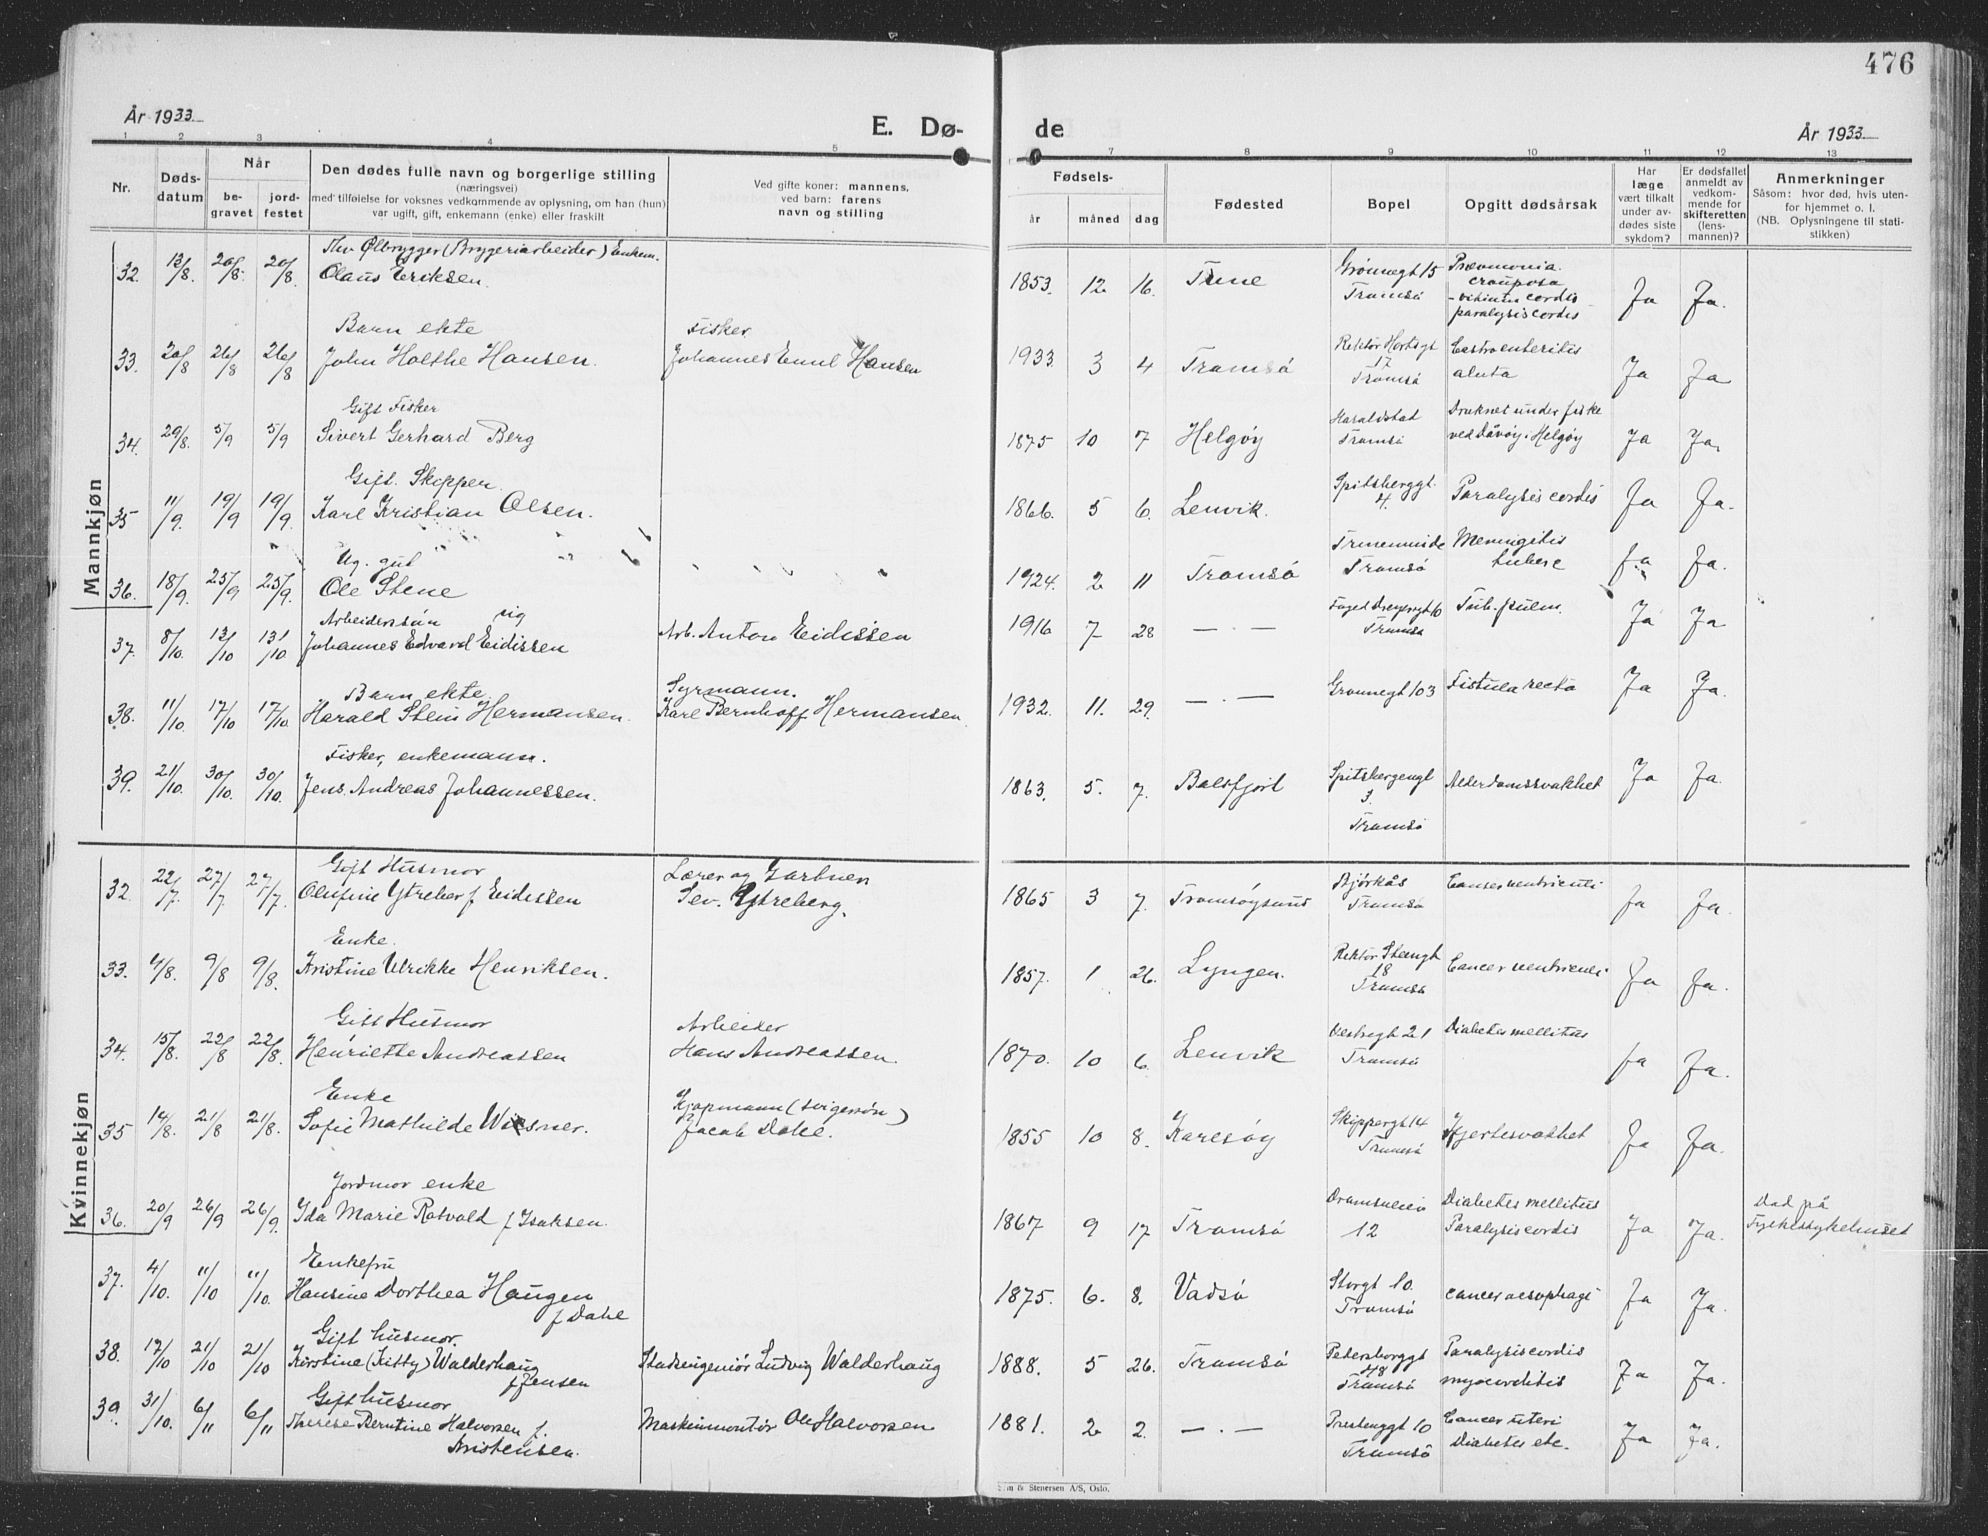 476
År 1933.
E. Dø-
de
År 1933.
1 2 3 4 5 7 8 9 10 11 12 13
Nr.
Døds-
datum
Når
be-
gravet
jord-
festet
Den dødes fulle navn og borgerlige stilling
(næringsvei)
med tilføielse for voksnes vedkommende av oplysning, om han (hun)
var ugift, gift, enkemann (enke) eller fraskilt
Ved gifte koner: mannens,
ved barn: farens
navn og stilling
Fødsels-
år
måned
dag
Fødested
Bopel
Opgitt dødsårsak
Har
læge
vært tilkalt
under av-
dødes siste
sykdom?
Er dødsfallet
anmeldt av
vedkom-
mende for
skifteretten
(lens-
mannen)?
Anmerkninger
Såsom: hvor død, hvis uten-
for hjemmet o. l.
(NB. Oplysningene til stati-
stikken)
Mannkjøn
Ølbrygger (Bryggeriarbeider) Enkem.
32. 13/8. 20/8. 20/8. Olaus Eriksen. 1853. 12 16. Grönnegt 15 Tromsö
crouposa
vitium cordis
paralysis cordis Ja Ja.
Barn ekte Fisker
33. 20/8 26/8 26/8 John Holthe Hansen. Johannes Emil Hansen 1933. 3 4 Tromsö 17 Tromsö Gastroenteritis
akuta Ja Ja
Gift Fisker
34. 29/8. 5/9 5/9 Sivert Gerhard Berg 1875 10 7 Helgöy Haraldstad
Tromsö Druknet under fiske
ved Dåvöy i Helgöy Ja Ja.
Gift. Skipper.
35 11/9. 19/9 19/9. Karl Kristian Olsen. 1866. 5 6. Lenvik. Spitsberggt.
4. Paralysis cordis Ja Ja.
Ug. gut
36. 18/9. 25/9 25/9. Ole Stene 1924. 2 11 Tromsö
Tromsö Meningitis
tuberc Ja Ja.
Arbeiderssön ug
37. 8/10. 13/10 13/10. Johannes Edvard Eidissen Arb. Anton Eidissen 1916 7 28 — . —
Tromsö Tub. pulm. Ja Ja
Barn ekte Syrmann.
38. 11/10. 17/10 17/10. Harald Stein Hermansen. Karl Bernhoff Hermansen. 1932. 11. 29. — . — Grönnegt 103 Fistula recto Ja Ja.
Fisker, enkemann.
39. 21/10. 30/10. 30/10. Jens Andreas Johannessen. 1863. 5. 7. Balsfjort Spitsbergengt
3.
Tromsö Alderdomssvakhet Ja Ja.
Kvinnekjøn
Gift Husmor Lærer og Gartner
32. 22/7. 27/7 27/7. Olufine Ytreber f Eidissen Sev. Ytreberg. 1865 3 7. Tromsöysund Bjórkås
Tromsö Cancer ventriculi Ja Ja.
Enke.
33. 4/8. 9/8 9/8. Kristine Ulrikke Henriksen. 1857. 1 26. Lyngen.
18
Tromsö Cancer ventriculi Ja Ja.
Gift Husmor Arbeider
34. 15/8. 22/8 22/8. Henriette Andreassen Hans Andreassen. 1870. 10 6. Lenvik Vestregt 21
Tromsö Diabetes mellitus Ja Ja.
Enke Kjøpmann (svigersön)
35 14/8. 21/8 21/8. Sofie Mathilde Wiesner. Jacob Dahl. 1855 10 8. Karlsöy Skippergt 14
Tromsö Hjertesvakhet Ja Ja.
Jordmor enke
36. 20/9 26/9 26/9. Ida Marie Rotvold f Isaksen. 1867 9 17 Tromsö Dramsveien
12 Diabetes mellitus
Paralysis cordis Ja Ja. Död på
Fylkessykehuset
Enkefru
37. 4/10. 11/10 11/10. Hansine Dorthea Haugen
f Dahl 1875. 6. 8. Vadsö Storgt 10.
Tromsö cancer oesophagi Ja Ja.
Gift husmor.
38. 17/10 21/10 21/10 Kirstine (Kitty) Walderhaug
f Jensen Stadsingeniör Ludvig Walderhaug 1888. 5 26. Tromsö Petersborggt
48
Tromsö Paralysis cordis
myocarditis Ja Ja.
Gift husmor
39. 31/10. 6/11 6/11 Therese Berntine Halvorsen f.
Kristensen. Maskinmontör Ole Halvorsen 1881. 2 2. — . — Prestenggt 10
Tromsö Cancer uteri
Diabetes etc. Ja Ja.
& Stenersen A/S, Oslo.